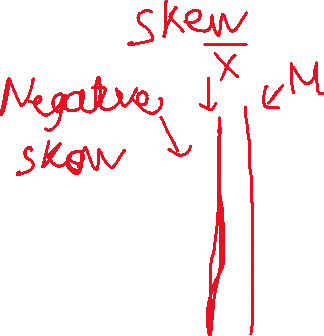 skew
X̄ M
Negative
skew